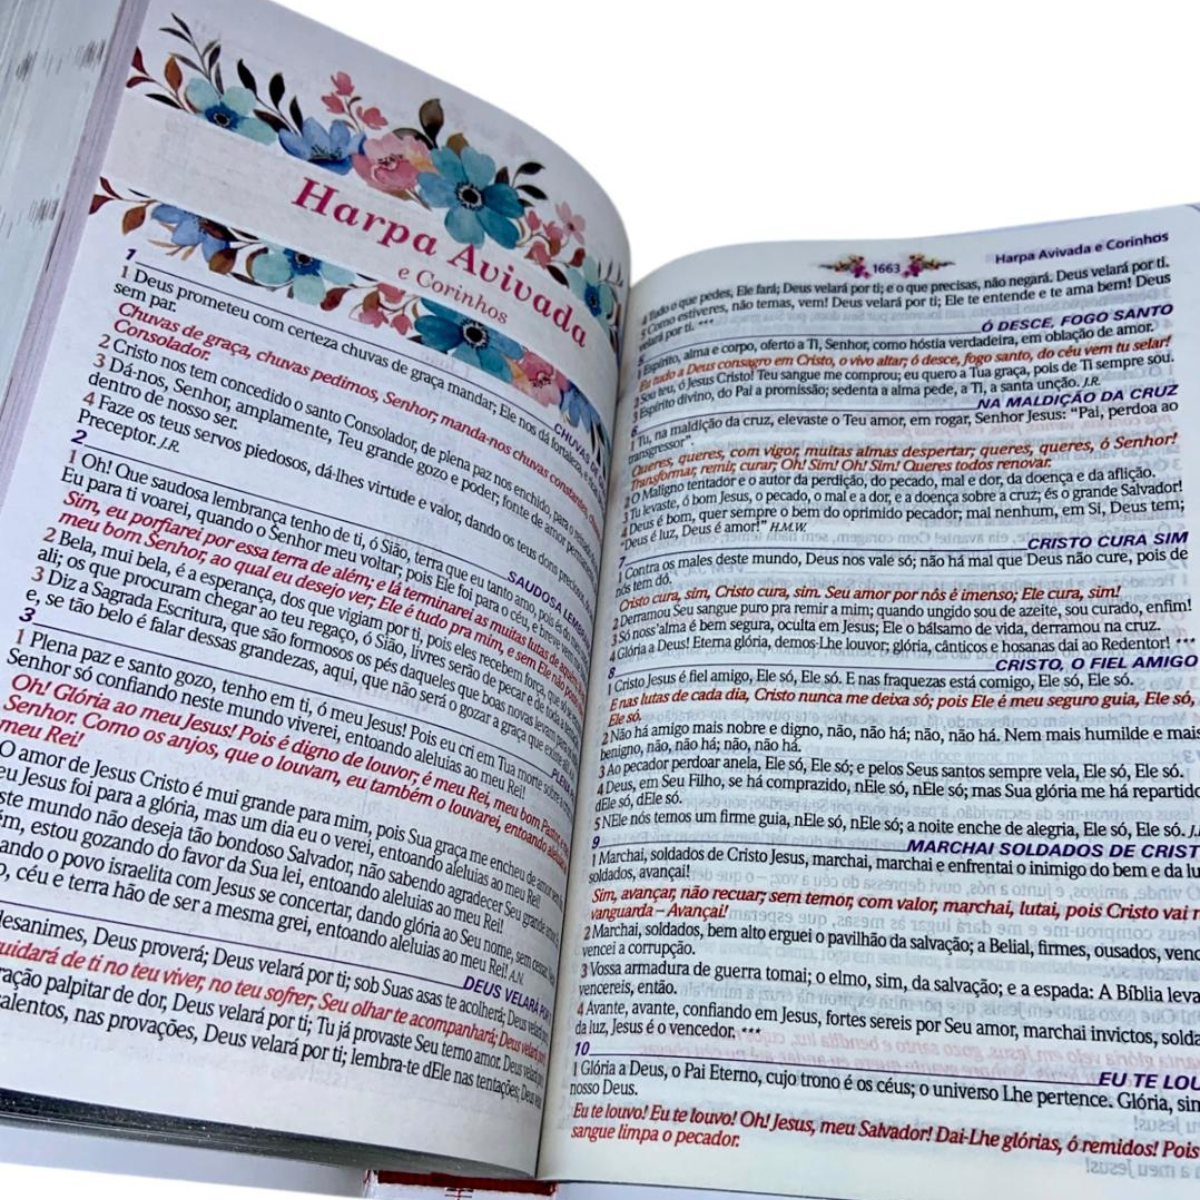 Harpa Avivada
e Corinhos
1
CHUVAS DE
1 Deus prometeu com certeza chuvas de graça mandar; Ele nos dá fortaleza, e
sem par.
Chuvas de graça, chuvas pedimos, Senhor; manda-nos chuvas constantes,
Consolador.
2 Cristo nos tem concedido o santo Consolador, de plena paz nos enchido, para o
3 Dá-nos, Senhor, amplamente, Teu grande gozo e poder; fonte de amor permanente,
dentro de nosso ser.
4 Faze os teus servos piedosos, dá-lhes virtude e valor, dando os teus dons preciosos,
Preceptor. J.R.
2
SAUDOSA
1 Oh! Que saudosa lembrança tenho de ti, ó Sião, terra que eu tanto amo, pois és do
Eu para ti voarei, quando o Senhor meu voltar; pois Ele foi para o céu, e breve vem
Sim, eu porfiarei por essa terra de além; e lá terminarei as muitas lutas de
meu bom Senhor, ao qual eu desejo ver; Ele é tudo pra mim, e sem Ele não
2 Bela, mui bela, é a esperança, dos que vigiam por ti, pois eles recebem força, que
ali; os que procuram chegar ao teu regaço, ó Sião, livres serão de pecar e de toda
3 Diz a Sagrada Escritura, que são formosos os pés daqueles que boas novas levam para
e, se tão belo é falar dessas grandezas, aqui, que não será o gozar a graça que existe
3
PLENA
1 Plena paz e santo gozo, tenho em ti, ó meu Jesus! Pois eu cri em Tua morte sobre a
Senhor só confiando neste mundo viverei, entoando aleluias ao meu Rei!
Oh! Glória ao meu Jesus! Pois é digno de louvor; é meu Rei, meu bom Pastor, e
Senhor. Como os anjos, que o louvam, eu também o louvarei, entoando
meu Rei!
O amor de Jesus Cristo é mui grande para mim, pois Sua graça me encheu de amor sem
eu Jesus foi para a glória, mas um dia eu o verei, entoando aleluias ao meu Rei!
ste mundo não deseja tão bondoso Salvador, não sabendo agradecer Seu grande
ém, estou gozando do favor da Sua lei, entoando aleluias ao meu Rei!
ando o povo israelita com Jesus se concertar, dando glória ao Seu nome, sem cessar
o, céu e terra hão de ser a mesma grei, entoando aleluias ao meu Rei! A.N.
DEUS VELARÁ POR
desanimes, Deus proverá; Deus velará por ti; sob Suas asas te acolherá; Deus
uidará de ti no teu viver, no teu sofrer; Seu olhar te acompanhará; Deus
ração palpitar de dor, Deus velará por ti; Tu já provaste Seu terno amor. Deus
alentos, nas provações, Deus velará por ti; lembra-te dEle nas tentações; Deus
1663
Harpa Avivada e Corinhos
Tudo o que pedes, Ele fará; Deus velará por ti; e o que precisas, não negará. Deus velará por ti.
Como estiveres, não temas, vem! Deus velará por ti; Ele te entende e te ama bem! Deus
velará por ti. ***
Ó DESCE, FOGO SANTO
1 Espírito, alma e corpo, oferto a Ti, Senhor, como hóstia verdadeira, em oblação de amor.
Eu tudo a Deus consagro em Cristo, o vivo altar; ó desce, fogo santo, do céu vem tu selar!
2 Sou teu, ó Jesus Cristo! Teu sangue me comprou; eu quero a Tua graça, pois de Ti sempre sou.
3 Espírito divino, do Pai a promissão; sedenta a alma pede, a Ti, a santa unção. J.R.
NA MALDIÇÃO DA CRUZ
1 Tu, na maldição da cruz, elevaste o Teu amor, em rogar, Senhor Jesus: “Pai, perdoa ao
transgressor”.
Queres, queres, com vigor, muitas almas despertar; queres, queres, ó Senhor!
Transformar, remir, curar; Oh! Sim! Oh! Sim! Queres todos renovar.
2 O Maligno tentador e o autor da perdição, do pecado, mal e dor, da doença e da aflição.
3 Tu levaste, ó bom Jesus, o pecado, o mal e a dor, e a doença sobre a cruz; és o grande Salvador!
4 Deus é bom, quer sempre o bem do oprimido pecador; mal nenhum, em Si, Deus tem;
“Deus é luz, Deus é amor!” H.M.W.
7
CRISTO CURA SIM
1 Contra os males deste mundo, Deus nos vale só; não há mal que Deus não cure, pois de
nós tem dó.
Cristo cura, sim, Cristo cura, sim. Seu amor por nós é imenso; Ele cura, sim!
2 Derramou Seu sangue puro pra remir a mim; quando ungido sou de azeite, sou curado, enfim!
3 Só noss’alma é bem segura, oculta em Jesus; Ele o bálsamo de vida, derramou na cruz.
4 Glória a Deus! Eterna glória, demos-Lhe louvor; glória, cânticos e hosanas daí ao Redentor! **
8
CRISTO, O FIEL AMIGO
1 Cristo Jesus é fiel amigo, Ele só, Ele só. E nas fraquezas está comigo, Ele só, Ele só.
E nas lutas de cada dia, Cristo nunca me deixa só; pois Ele é meu seguro guia, Ele só,
Ele só.
2 Não há amigo mais nobre e digno, não, não há; não, não há. Nem mais humilde e mais
benigno, não, não há; não, não há.
3 Ao pecador perdoar anela, Ele só, Ele só; e pelos Seus santos sempre vela, Ele só, Ele só.
4 Deus, em Seu Filho, se há comprazido, nEle só, nEle só; mas Sua glória me há repartido
dEle só, dEle só.
5 NEle nós temos um firme guia, nEle só, nEle só; a noite enche de alegria, Ele só, Ele só. J.
9
MARCHAI SOLDADOS DE CRIST
1 Marchai, soldados de Cristo Jesus, marchai, marchai e enfrentai o inimigo do bem e da lu
soldados, avançai!
Sim, avançar, não recuar; sem temor, com valor, marchai, lutai, pois Cristo vai
vanguarda – Avançai!
2 Marchai, soldados, bem alto erguei o pavilhão da salvação; a Belial, firmes, ousados, venc
vencei a corrupção.
3 Vossa armadura de guerra tomai; o elmo, sim, da salvação; e a espada: A Bíblia leva
vencereis, então.
4 Avante, avante, confiando em Jesus, fortes sereis por Seu amor, marchai invictos, solda
da luz, Jesus é o vencedor. ***
10
EU TE LOU
1 Glória a Deus, o Pai Eterno, cujo trono é os céus; o universo Lhe pertence. Glória, sim
nosso Deus.
Eu te louvo! Eu te louvo! Oh! Jesus, meu Salvador! Dai-Lhe glórias, ó remidos! Pois
sangue limpa o pecador.